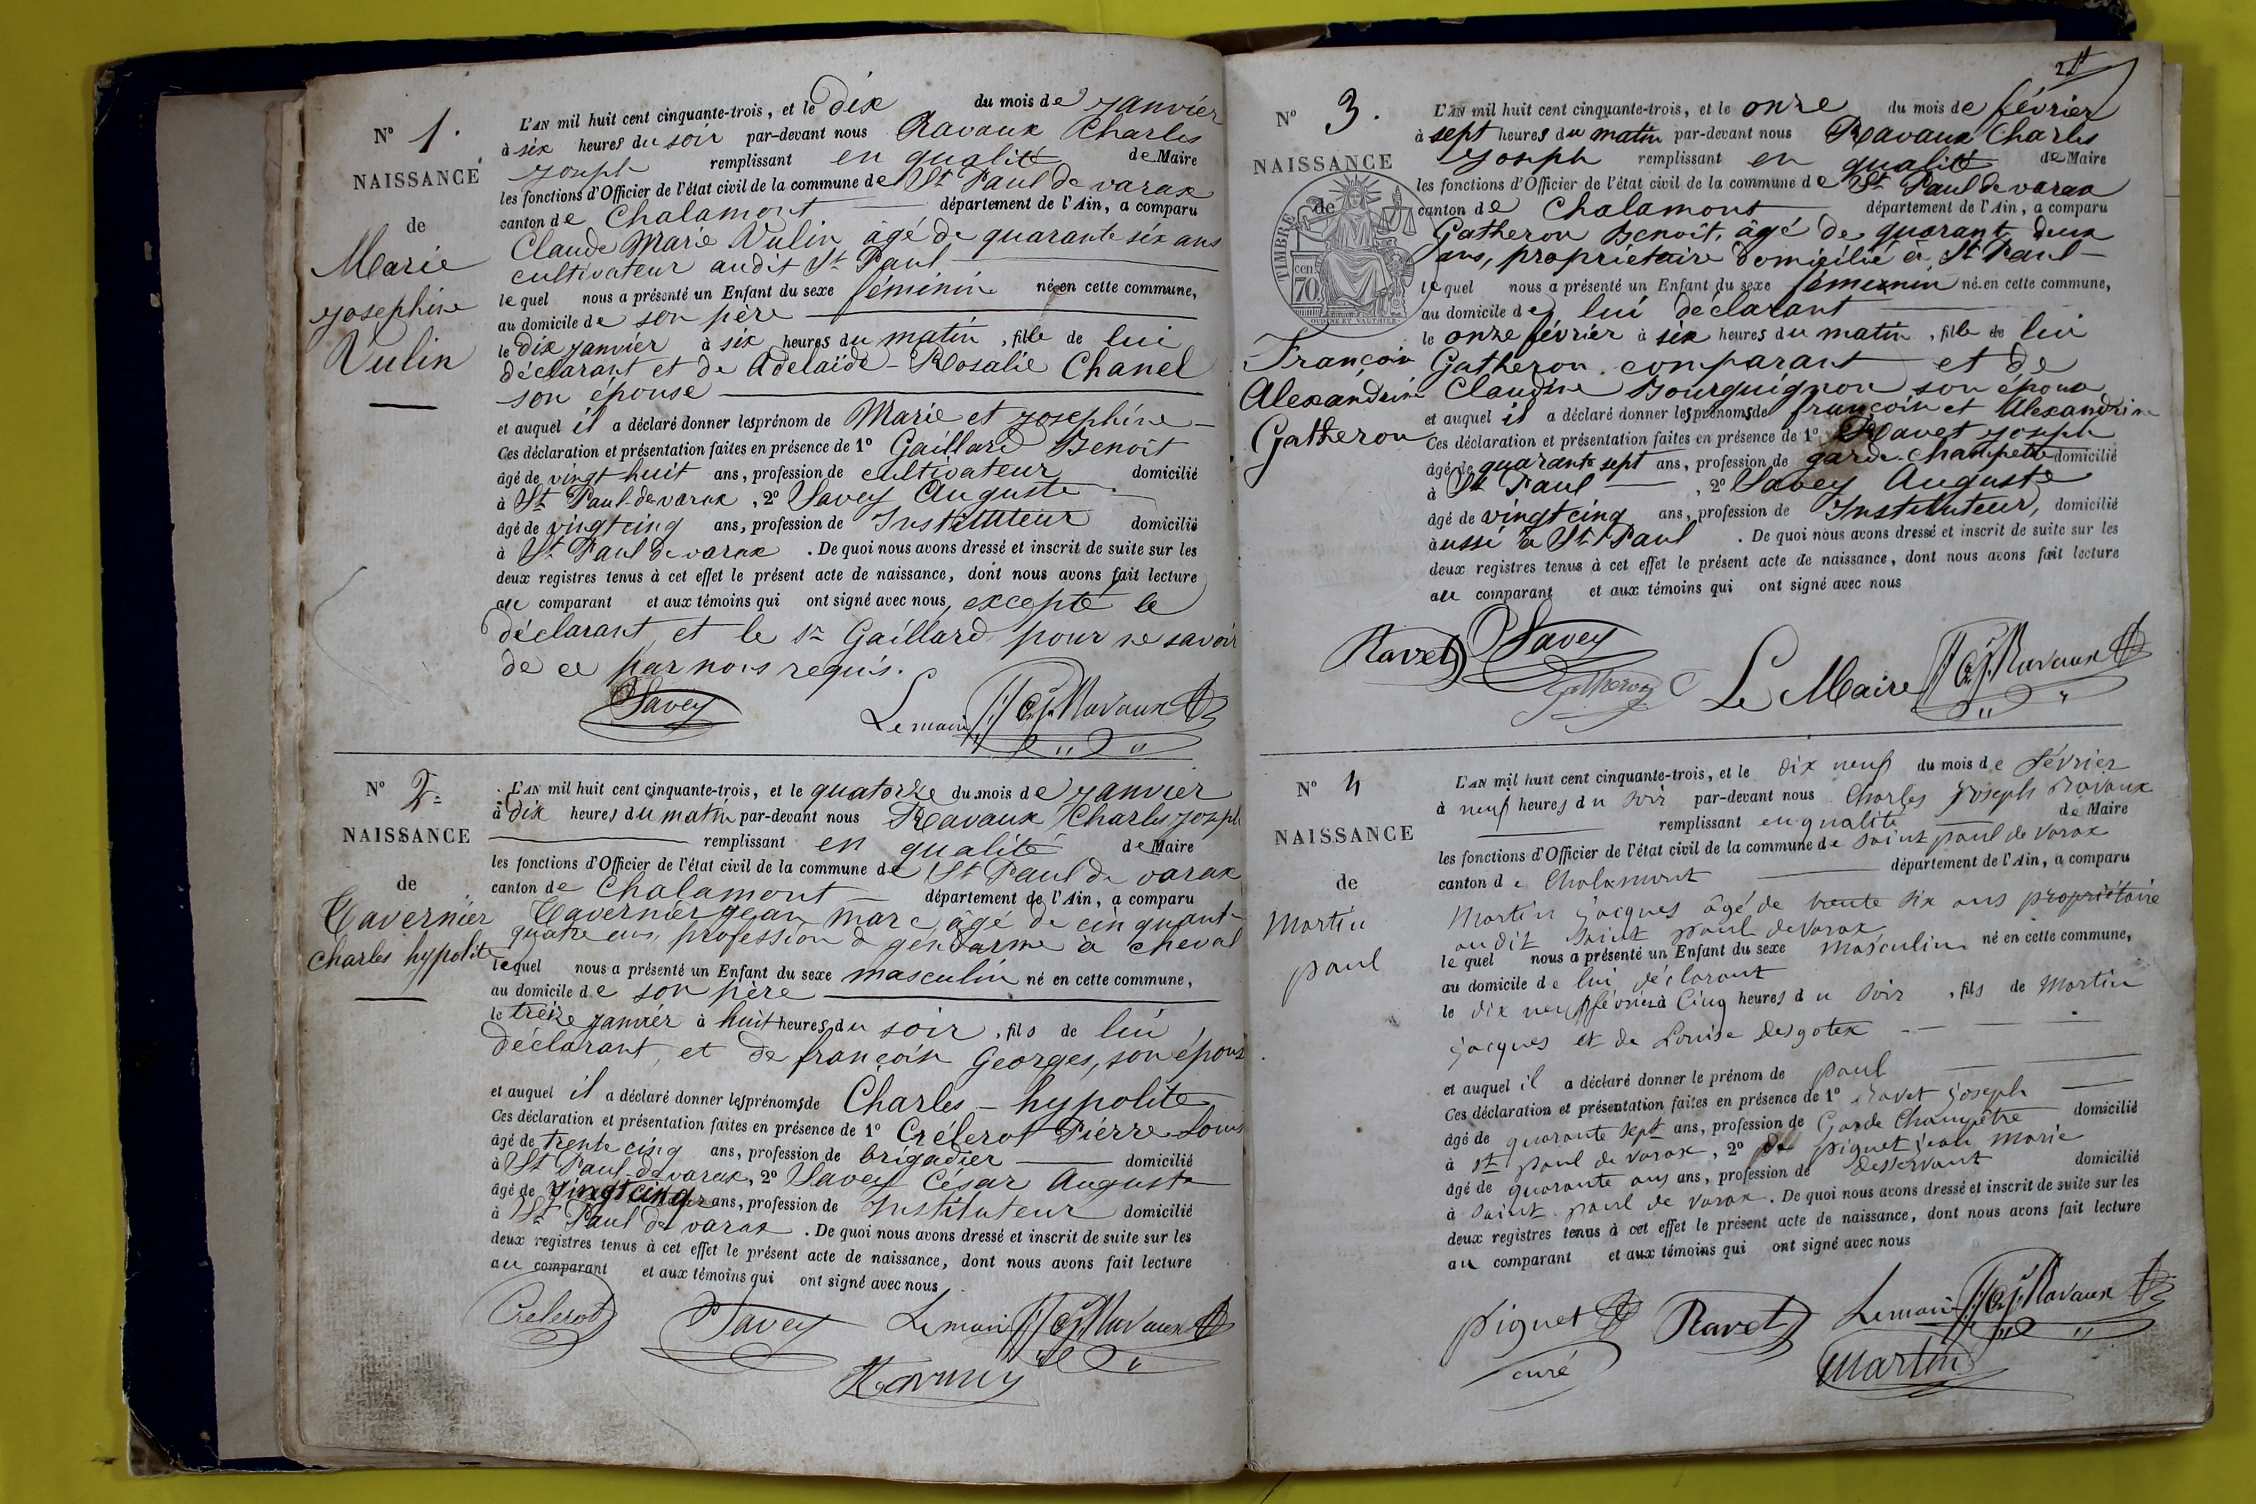 N° 1.
NAISSANCE
de
Marie
Josephine
Vulin
L'AN mil huit cent cinquante-trois, et le dix du mois de Janvier
à six heures du soir par-devant nous Ravaux Charles
Joseph remplissant en qualité de Maire
les fonctions d'Officier de l'état civil de la commune de St Paul de varax
canton de Chalamont département de l'Ain, a comparu
Claude Marie Vulin âgé de quarante six ans
cultivateur audit St Paul
lequel nous a présenté un Enfant du sexe féminin né en cette commune,
au domicile de son père
le dix Janvier à six heures du matin, fille de lui
déclarant et de Adelaïde-Rosalie Chanel
son épouse
et auquel il a déclaré donner les prénom de Marie et Josephine
Ces déclaration et présentation faites en présence de 1° Gaillard Benoit
âgé de vingt huit ans, profession de cultivateur domicilié
à St Paul-de varax, 2° Savey Auguste
âgé de vingt cinq ans, profession de Instituteur domicilié
à St Paul de varax. De quoi nous avons dressé et inscrit de suite sur les
deux registres tenus à cet effet le présent acte de naissance, dont nous avons fait lecture
au comparant et aux témoins qui ont signé avec nous, excepté le
déclarant, et le sr Gaillard pour ne savoir
de ce par nous requis.
Savey Le maire Ch. J. Ravaux
N° 2.
NAISSANCE
de
Tavernier
Charles hypolite
L'AN mil huit cent cinquante-trois, et le quatorze du mois de Janvier
à dix heures du matin par-devant nous Ravaux Charles Joseph
remplissant en qualité de Maire
les fonctions d'Officier de l'état civil de la commune de St Paul de varax
canton de Chalamont département de l'Ain, a comparu
Tavernier Jean Marc âgé de cinquant-
quatre ans, profession de gendarme à cheval
lequel nous a présenté un Enfant du sexe masculin né en cette commune,
au domicile de son père
le treize Janvier à huit heures du soir, fils de lui
déclarant, et de françoise Georges, son épouse
et auquel il a déclaré donner les prénoms de Charles-hypolite
Ces déclaration et présentation faites en présence de 1° Crélerot Pierre Louis
âgé de trente cinq ans, profession de brigadier domicilié
à St Paul-de varax, 2° Savey César Auguste
âgé de vingt cinq ans, profession de Instituteur domicilié
à St Paul de varax. De quoi nous avons dressé et inscrit de suite sur les
deux registres tenus à cet effet le présent acte de naissance, dont nous avons fait lecture
au comparant et aux témoins qui ont signé avec nous
Crelerot Savey Le maire Ch. J. Ravaux
N° 3.
NAISSANCE
de
TIMBRE
cen
70
François
Alexandrine
Gatheron
L'AN mil huit cent cinquante-trois, et le onze du mois de février
à sept heures du matin par-devant nous Ravaux Charles
Joseph remplissant en qualité de Maire
les fonctions d'Officier de l'état civil de la commune de St Paul de varax
canton de Chalamont département de l'Ain, a comparu
Gatheron Benoit, âgé de quarant deux
ans, propriétaire domicilié à St Paul-
lequel nous a présenté un Enfant du sexe féminin né en cette commune,
au domicile de lui déclarant
le onze février à six heures du matin, fille de lui
Gatheron comparant et de
Claudine Bourguignon son épouse
et auquel il a déclaré donner les prénoms de françoise et Alexandrine
Ces déclaration et présentation faites en présence de 1° Ravet Joseph
âgé de quarante sept ans, profession de garde-Champêtre domicilié
à St Paul, 2° Savey Auguste
âgé de vingt cinq ans, profession de Instituteur, domicilié
aussi à St Paul. De quoi nous avons dressé et inscrit de suite sur les
deux registres tenus à cet effet le présent acte de naissance, dont nous avons fait lecture
au comparant et aux témoins qui ont signé avec nous
Ravet Savey
Gatheron Le Maire Ch. J. Ravaux
N° 4
NAISSANCE
de
Martin
paul
L'AN mil huit cent cinquante-trois, et le dix neuf du mois de février
à neuf heures du soir par-devant nous Charles Joseph Ravaux
remplissant en qualité de Maire
les fonctions d'Officier de l'état civil de la commune de saint paul de varax
canton de Chalamont département de l'Ain, a comparu
Martin jacques âgé de trente six ans propriétaire
audit saint paul de varax
lequel nous a présenté un Enfant du sexe masculin né en cette commune,
au domicile de lui déclarant
le dix neuf février à cinq heures du soir, fils de Martin
jacques et de Louise Desgotex
et auquel il a déclaré donner le prénom de paul
Ces déclaration et présentation faites en présence de 1° Ravet joseph
âgé de quarante sept ans, profession de Garde Champêtre domicilié
à st paul de varax, 2° piquet jean marie
âgé de quarante ans, profession de desservant domicilié
à saint paul de varax. De quoi nous avons dressé et inscrit de suite sur les
deux registres tenus à cet effet le présent acte de naissance, dont nous avons fait lecture
au comparant et aux témoins qui ont signé avec nous
piquet Ravet Le maire Ch. J. Ravaux
curé Martin